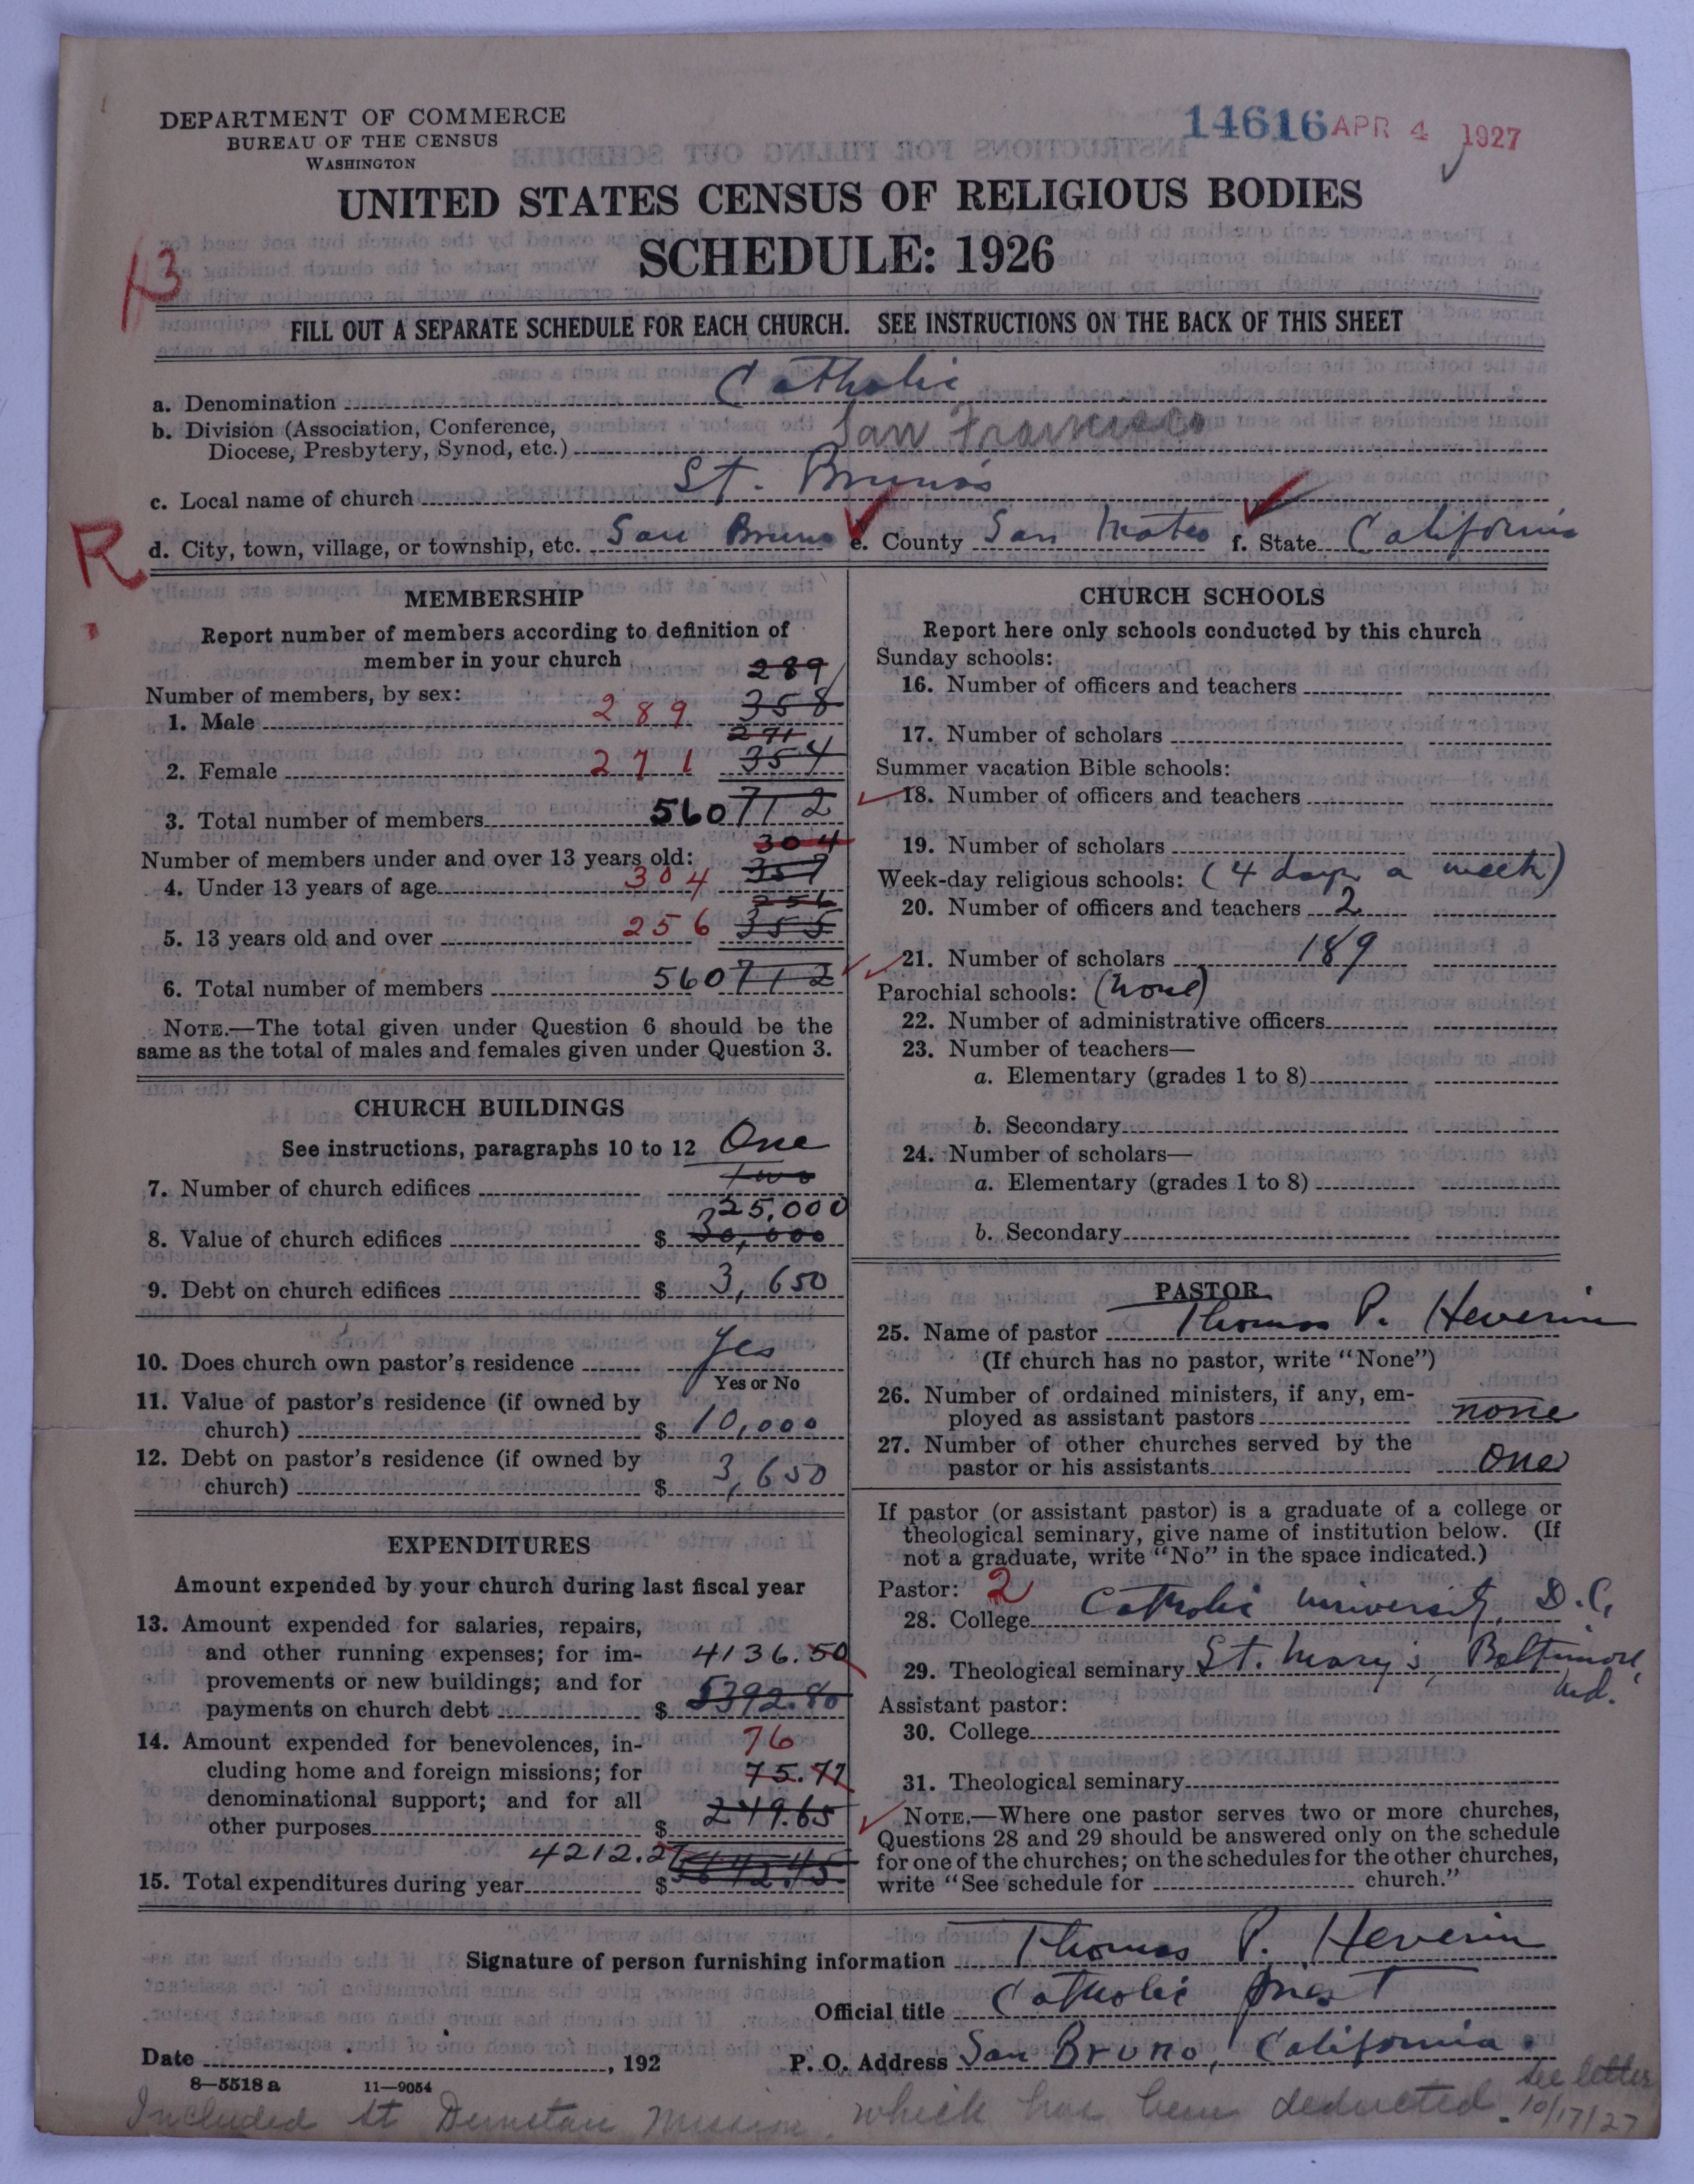 DEPARTMENT OF COMMERCE
BUREAU OF THE CENSUS
WASHINGTON
14616 APR 4 1927
UNITED STATES CENSUS OF RELIGIOUS BODIES
SCHEDULE: 1926
FILL OUT A SEPARATE SCHEDULE FOR EACH CHURCH. SEE INSTRUCTIONS ON THE BACK OF THIS SHEET
a. Denomination Catholic
b. Division (Association, Conference, Diocese, Presbytery, Synod, etc.) San Francisco
c. Local name of church St. Bruno's
R d. City, town, village, or township, etc. San Bruno e. County San Mateo f. State California
MEMBERSHIP
Report number of members according to definition of
member in your church
289
Number of members, by sex:
1. Male 289 358
271
2. Female 271 354
3. Total number of members 560 712
304
Number of members under and over 13 years old:
4. Under 13 years of age 304 357
256
5. 13 years old and over 256 355
6. Total number of members 560 712
NOTE.—The total given under Question 6 should be the
same as the total of males and females given under Question 3.
CHURCH BUILDINGS
See instructions, paragraphs 10 to 12 One
7. Number of church edifices Two
25,000
8. Value of church edifices $ 30,000
9. Debt on church edifices $ 3,650
10. Does church own pastor's residence Yes
Yes or No
11. Value of pastor's residence (if owned by
church) $ 10,000
12. Debt on pastor's residence (if owned by
church) $ 3,650
EXPENDITURES
Amount expended by your church during last fiscal year
13. Amount expended for salaries, repairs,
and other running expenses; for im- 4136.50
provements or new buildings; and for
payments on church debt $ 5392.80
14. Amount expended for benevolences, in- 76
cluding home and foreign missions; for 75.77
denominational support; and for all
other purposes $ 249.65
4212.27
15. Total expenditures during year $ 5642.45
CHURCH SCHOOLS
Report here only schools conducted by this church
Sunday schools:
16. Number of officers and teachers
17. Number of scholars
Summer vacation Bible schools:
18. Number of officers and teachers
19. Number of scholars
Week-day religious schools: (4 days a week)
20. Number of officers and teachers 2
21. Number of scholars 189
Parochial schools: (none)
22. Number of administrative officers
23. Number of teachers—
a. Elementary (grades 1 to 8)
b. Secondary
24. Number of scholars—
a. Elementary (grades 1 to 8)
b. Secondary
PASTOR
25. Name of pastor Thomas P. Heverin
(If church has no pastor, write "None")
26. Number of ordained ministers, if any, em-
ployed as assistant pastors none
27. Number of other churches served by the
pastor or his assistants One
If pastor (or assistant pastor) is a graduate of a college or
theological seminary, give name of institution below. (If
not a graduate, write "No" in the space indicated.)
Pastor: 2
28. College Catholic University, D.C.
29. Theological seminary St. Mary's, Baltimore, Md.
Assistant pastor:
30. College
31. Theological seminary
NOTE.—Where one pastor serves two or more churches,
Questions 28 and 29 should be answered only on the schedule
for one of the churches; on the schedules for the other churches,
write "See schedule for church."
Signature of person furnishing information Thomas P. Heverin
Official title Catholic Priest
Date , 192 P. O. Address San Bruno, California.
8—5518 a 11—9054
Included St Dunstan Mission, which has been deducted. See letter 10/17/27